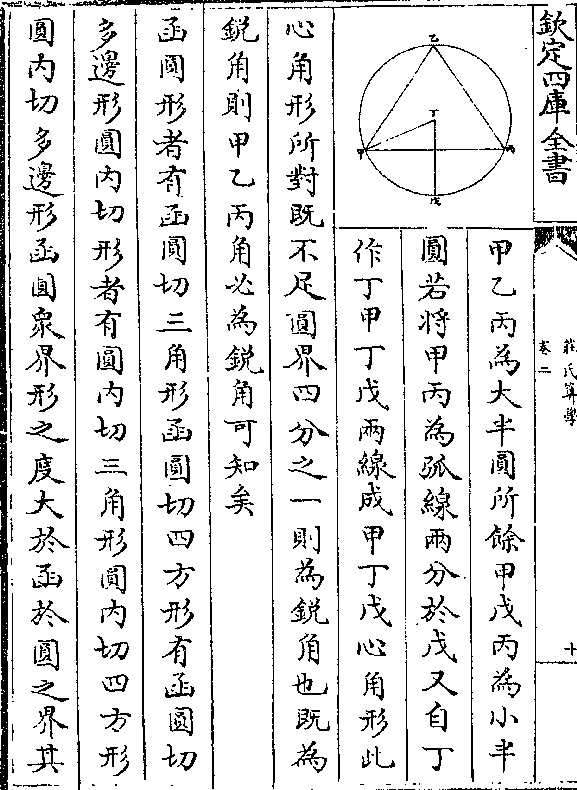 欽定四庫全書
莊氏算學
卷二
十
乙
丁
甲
丙
戊
甲乙丙為大半圓所餘甲戊丙為小半
圓若將甲丙為弧線兩分於戊又自丁
作丁甲丁戊兩線成甲丁戊心角形此
心角形所對既不足圓界四分之一則為鋭角也既為
鋭角則甲乙丙角必為鋭角可知矣
函圓形者有函圓切三角形函圓切四方形有函圓切
多邊形圓内切形者有圓内切三角形圓内切四方形
圓内切多邊形函圓衆界形之度大於函於圓之界其